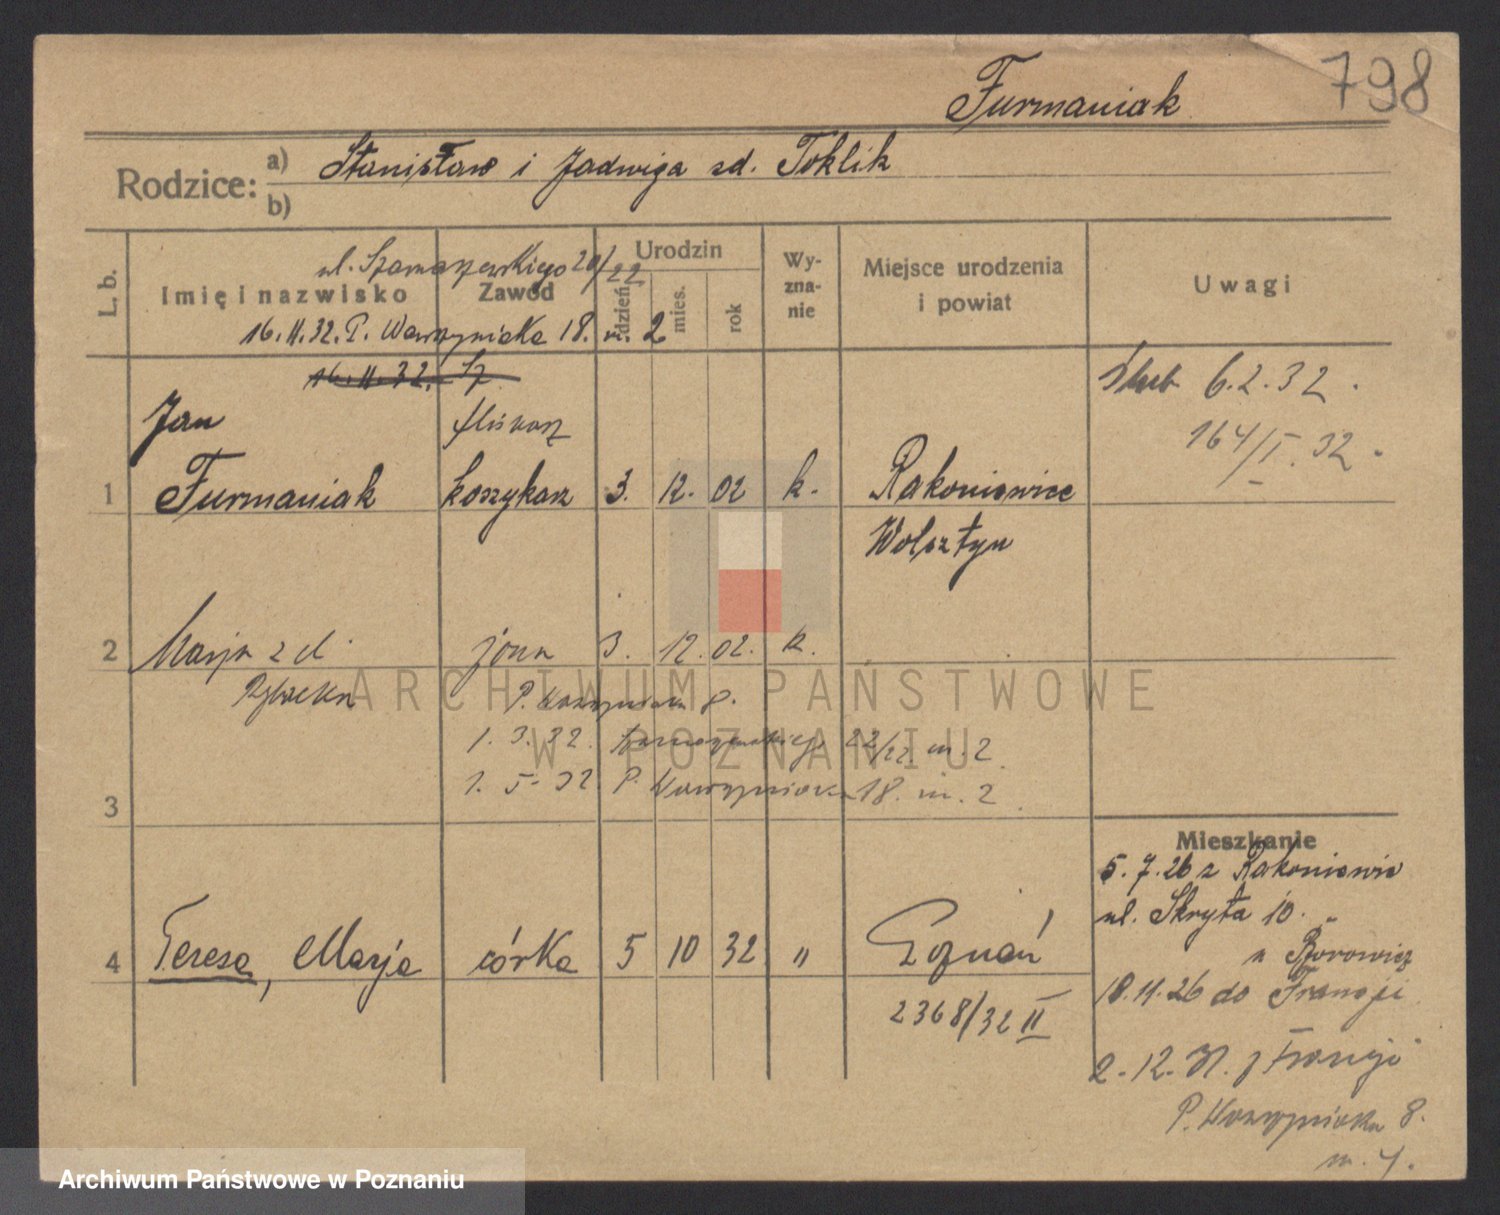 798
Furmaniak
Rodzice: a) Stanisław i Jadwiga zd. Toklik
b)
L. b.
Imię i nazwisko
Zawód
Urodzin
dzień
mies.
rok
Wy-
zna-
nie
Miejsce urodzenia
i powiat
Uwagi
ul. Szamarzewskiego 20/22
16.11.32. P. Wawrzyniaka 18. m. 2
16.11.32. Sz
Jan
1 Furmaniak koszykarz 3. 12. 02 k. Rakoniewice
Wolsztyn
Ślub 6.2.32.
164/I. 32.
2 Marja zd. żona 3. 12. 02. k.
P. Wawrzyniaka 8.
1. 3. 32. Szamarzewskiego 22/22 m. 2
1. 5. 32 P. Wawrzyniaka 18. m. 2
3
4 Teresa, Marja córka 5 10 32 " Poznań
2368/32 II
Mieszkanie
5. 7. 26 z Rakoniewic
ul. Skryta 10.
18.11.26 do Francji
2.12.31. z Francji
P. Wawrzyniaka 8.
m. 4.
ARCHIWUM PAŃSTWOWE
W POZNANIU
Archiwum Państwowe w Poznaniu